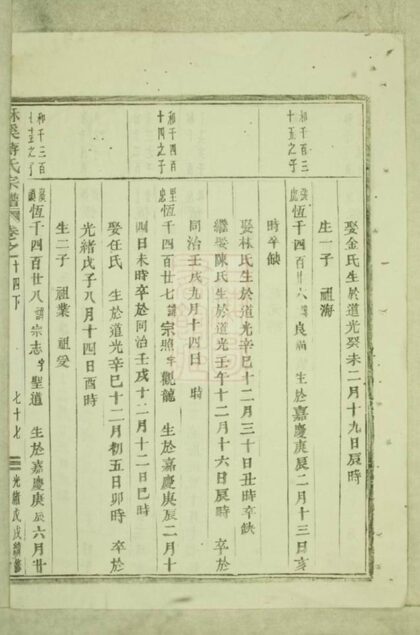 娶金氏生於道光癸未二月十九日辰時
生一子 祖海
和千百三十五之子
恆千四百廿六諱良 生於嘉慶庚辰二月十三日亥
時卒缺
娶林氏生於道光辛巳十二月三十日丑時卒缺
繼娶陳氏生於道光壬午十二月十六日辰時 卒於
同治壬戌九月十四日 時
和千四百十四之子
恆千四百廿七諱宗照字觀龍 生於嘉慶庚辰二月十
四日未時卒於同治壬戌十二月十二日巳時
娶任氏 生於道光辛巳十二月初五日卯時 卒於
光緒戊子八月十四日酉時
生二子 祖業 祖受
和千三百之子
恆千四百廿八諱宗志字聖道 生於嘉慶庚辰六月廿
溪蔣氏宗譜 卷之一十四下 七十七 光緒戊戌續修